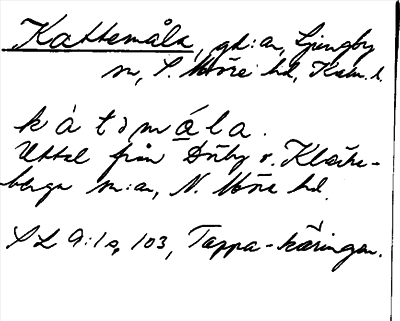 Kattemåla, gd:an, Ljungby
sn, S. Möre hd, Kalm. l.
kàtəmǻla.
Uttal från Dörby o. Kläcke-
berga sn:ar, N. Möre hd.
SL 9:1 s, 103, Tappa-käringen.